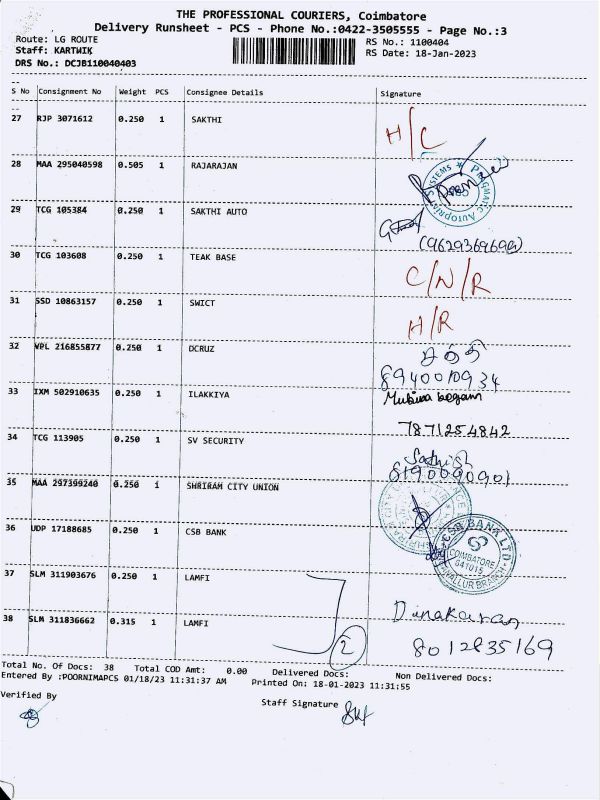 THE PROFESSIONAL COURIERS, Coimbatore
Delivery Runsheet - PCS - Phone No.:0422-3505555 - Page No.:3
Route: LG ROUTE
RS No.: 1100404
Staff: KARTWIK
RS Date: 18-Jan-2023
DRS No.: DCJB110040403
S No Consignment No Weight PCS Consignee Details Signature
27 RJP 3071612 0.250 1 SAKTHI H/C
28 MAA 295040598 0.505 1 RAJARAJAN
29 TCG 105384 0.250 1 SAKTHI AUTO
30 TCG 103608 0.250 1 TEAK BASE C/N/R
31 SSD 10863157 0.250 1 SWICT H/R
32 VPL 216855877 0.250 1 DCRUZ சக்தி
8940010934
33 IXM 502910635 0.250 1 ILAKKIYA Mubina begam
7871254842
34 TCG 113905 0.250 1 SV SECURITY Sathish
8190090901
35 MAA 297399240 0.250 1 SHRIRAM CITY UNION
36 UDP 17188685 0.250 1 CSB BANK
CSB BANK LTD
COIMBATORE
641015
37 SLM 311903676 0.250 1 LAMFI
Dinakaran
38 SLM 311836662 0.315 1 LAMFI 2 8012835169
Total No. Of Docs: 38 Total COD Amt: 0.00 Delivered Docs: Non Delivered Docs:
Entered By :POORNIMAPCS 01/18/23 11:31:37 AM Printed On: 18-01-2023 11:31:55
Verified By
Staff Signature